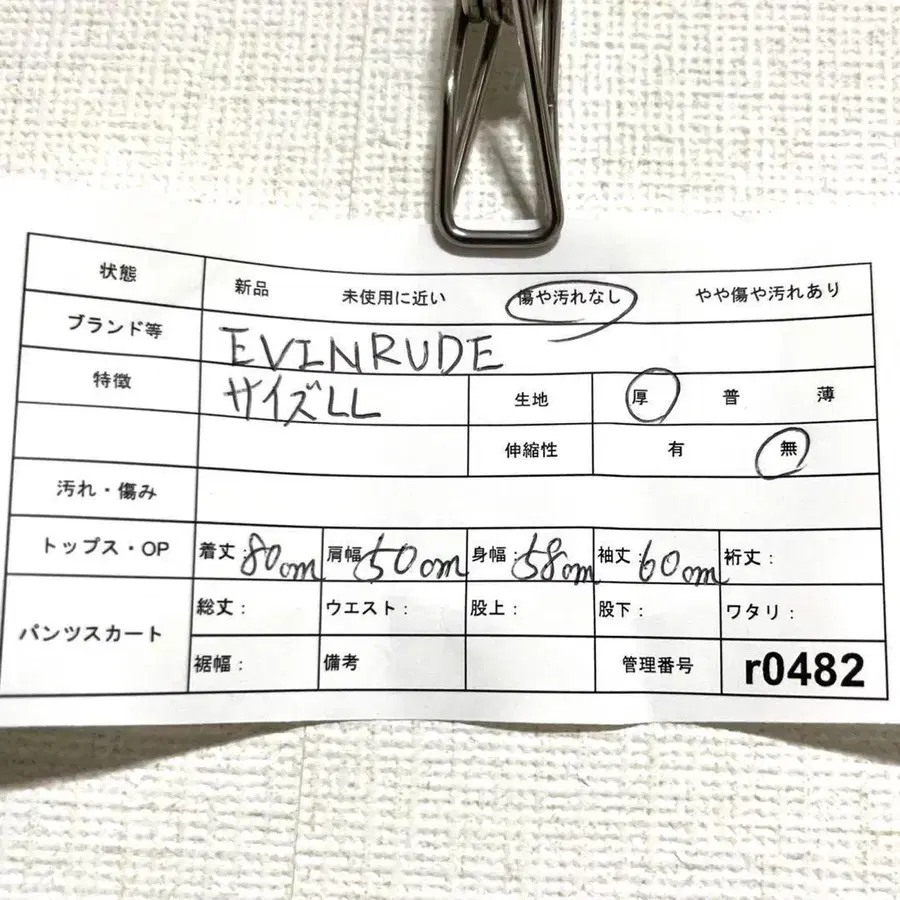 状態 新品 未使用に近い 傷や汚れなし やや傷や汚れあり
ブランド等 EVINRUDE
特徴 サイズLL 生地 厚 普 薄
伸縮性 有 無
汚れ・傷み
トップス・OP 着丈:80cm 肩幅:50cm 身幅:58cm 袖丈:60cm 裄丈:
パンツスカート 総丈: ウエスト: 股上: 股下: ワタリ:
裾幅: 備考 管理番号 r0482